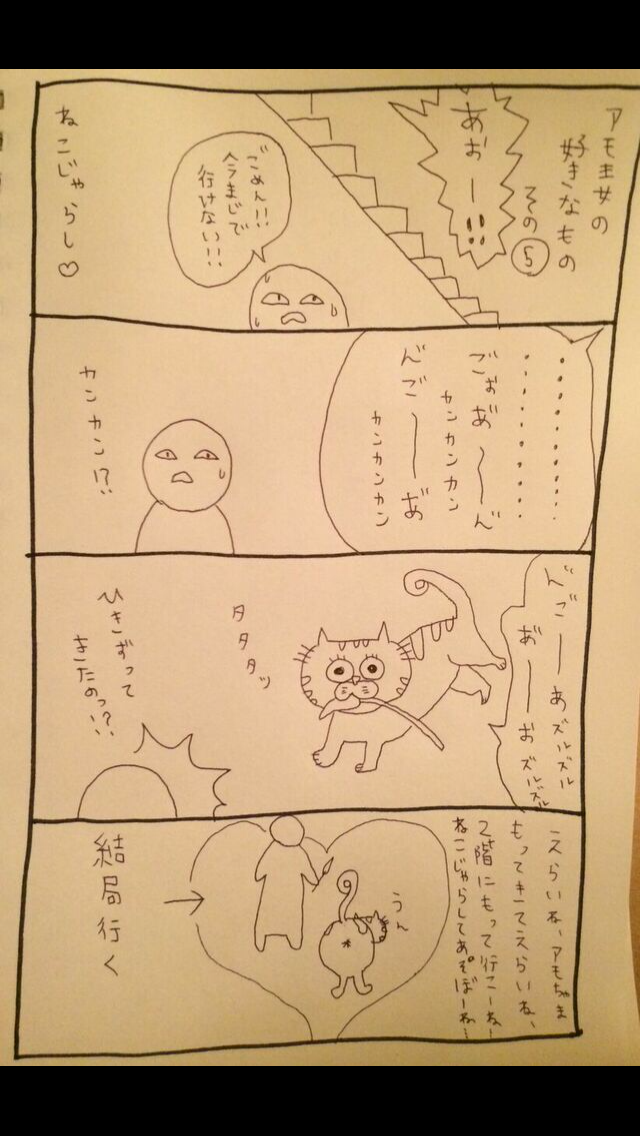 アモ主女の
好きなもの
その⑤
あぉー!!
ごめん!!
今まじで
行けない!!
ねこじゃらし♡
・・・・・・・・・・
・・・・・・・・・・
ごぉあ゛～ん゛
カンカンカン
ん゛ご――あ゛
カンカンカン
カンカン!?
ん゛ご――あズルズル
お゛――おズルズル
タタタッ
ひきずって
きたのっ!?
えらいね、アモちゃま
もってきてえらいね、
2階にもって行こーねー
ねこじゃらしてあそぼーねー
うん
→
結局行く